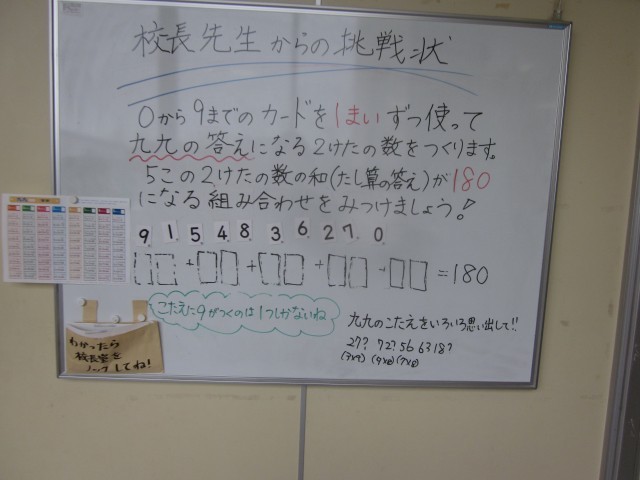 校長先生からの挑戦状
0から9までのカードを1まいずつ使って
九九の答えになる2けたの数をつくります。
5この2けたの数の和(たし算の答え)が180
になる組み合わせをみつけましょう!
9 1 5 4 8 3 6 2 7 0
□□+□□+□□+□□+□□=180
こたえに9がつくのは1つしかないね
九九のこたえをいろいろ思い出して!!
27? 72? 56 63 18?
わかったら
校長室を
ノックしてね!